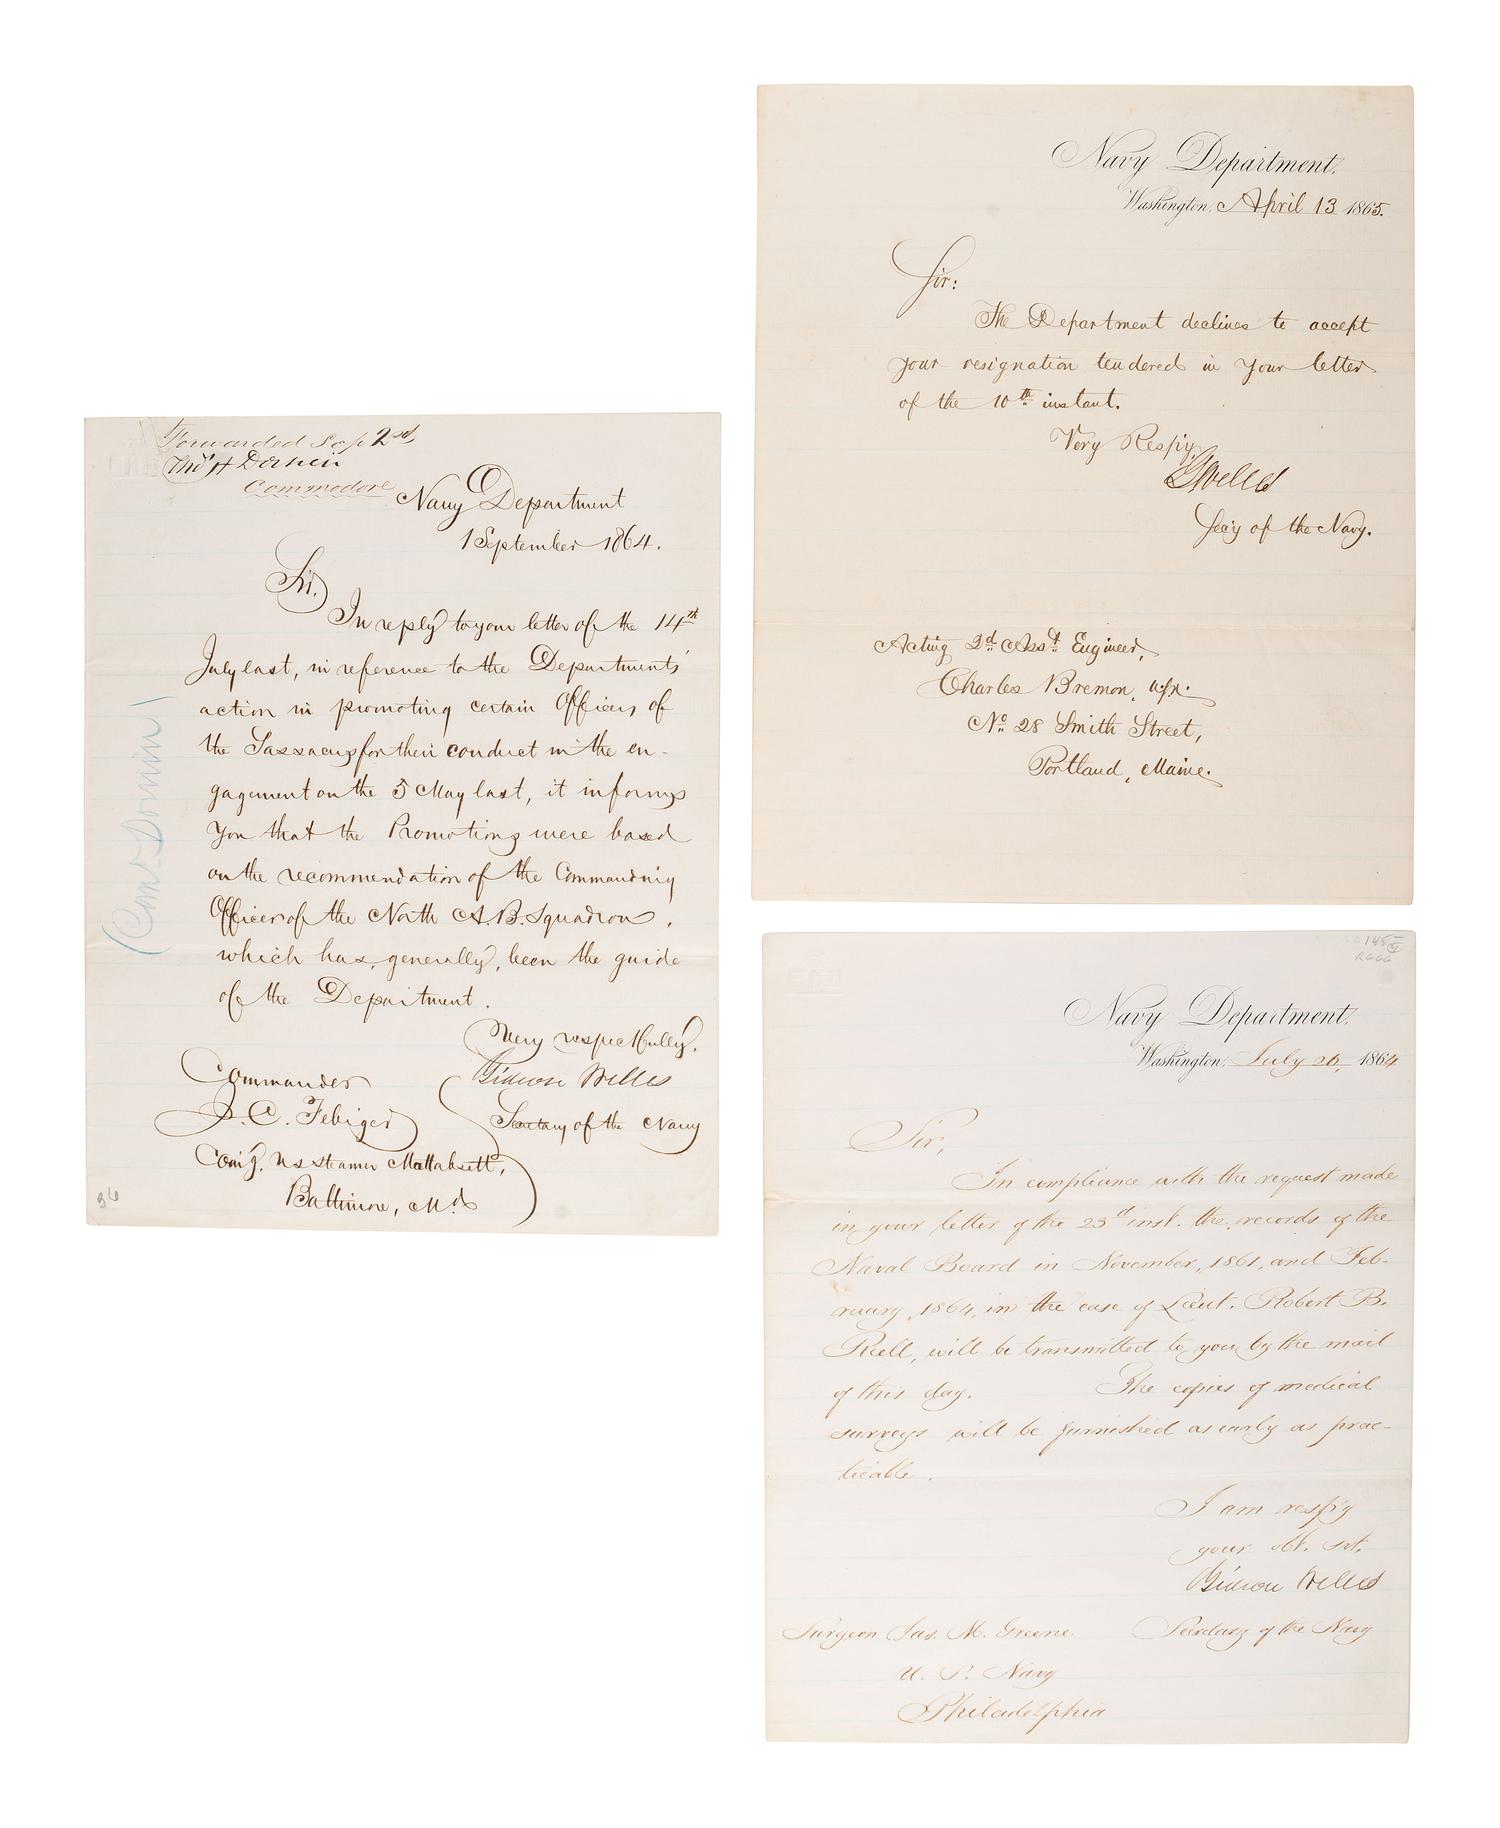 Forwarded Sep 2nd
Thos H Dornin
Commodore
Navy Department
1 September 1864.
Sir.
In reply to your letter of the 14th
July last, in reference to the Departments'
action in promoting certain Officers of
the Sassacus for their conduct in the en-
gagement on the 5 May last, it informs
you that the Promotions were based
on the recommendation of the Commanding
Officer of the North A. B. Squadron,
which has, generally, been the guide
of the Department.
Very respectfully,
Gideon Welles
Secretary of the Navy
Commander
J. C. Febiger
Com'g. U S Steamer Mattabesett,
Baltimore, Md
(Com. Dornin)
36
Navy Department,
Washington, April 13 1865.
Sir:
The Department declines to accept
your resignation tendered in your letter
of the 10th instant.
Very Respy,
G Welles
Sec'y of the Navy.
Acting 2d Asst. Engineer,
Charles Bremon,
No. 28 Smith Street,
Portland, Maine.
145
Navy Department,
Washington, July 26, 1864
Sir,
In compliance with the request made
in your letter of the 23d inst. the records of the
Naval Board in November, 1861, and Feb-
ruary, 1864, in the case of Lieut. Robert B.
Riell, will be transmitted to you by the mail
of this day. The copies of medical
surveys will be furnished as early as prac-
ticable.
I am resp'y
your obt. svt.
Gideon Welles
Secretary of the Navy
Surgeon Jas. M. Greene
U. S. Navy
Philadelphia